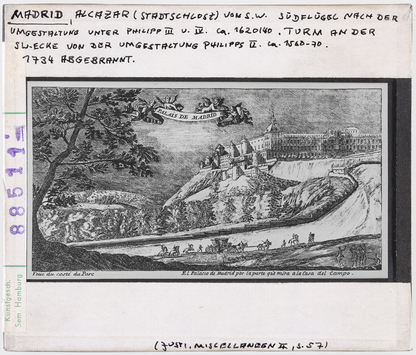 MADRID ALCAZAR (STADTSCHLOSZ) VON S.W. SÜDFLÜGEL NACH DER
UMGESTALTUNG UNTER PHILIPP III U. IV. ca. 1620/40. TURM AN DER
SW-ECKE VON DER UMGESTALTUNG PHILIPPS II. ca. 1560-70.
1734 ABGEBRANNT.
PALAIS DE MADRID
885 11
Kunstgesch.
Sem. Hamburg
Veue du costé du Parc
El Palacio de Madrid por la parte que mira a la Casa del Campo.
(JUSTI, MISCELLANEEN II, S. 57)